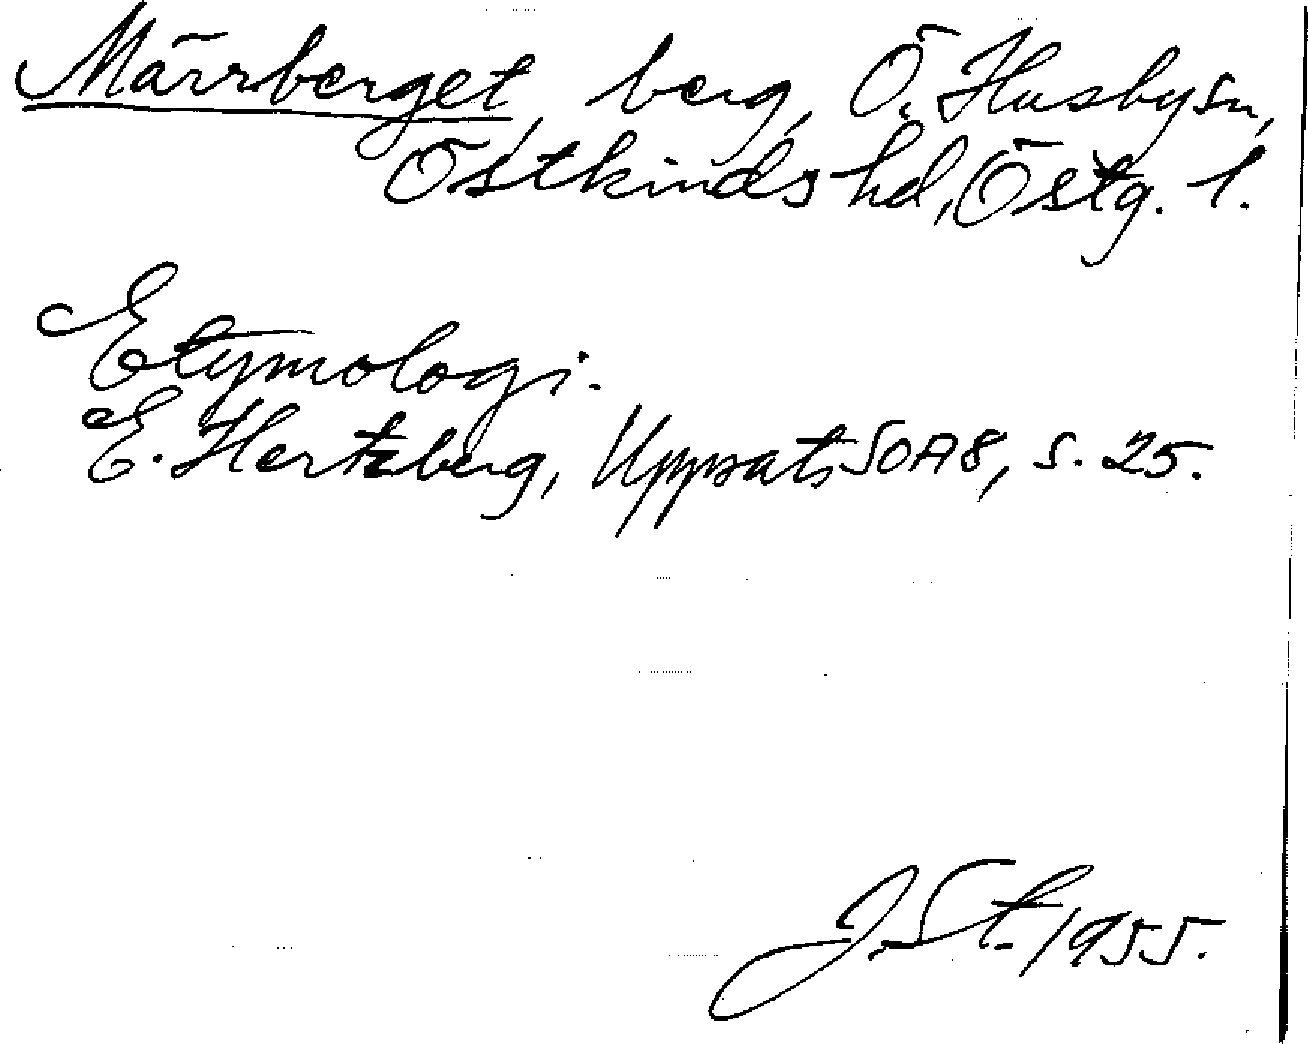 Märrberget, berg, Ö. Husby sn,
Östkinds hd, Östg. l.
Etymologi.
E. Hertzberg, Uppsats SOA 8, s. 25.
J. St. 1955.